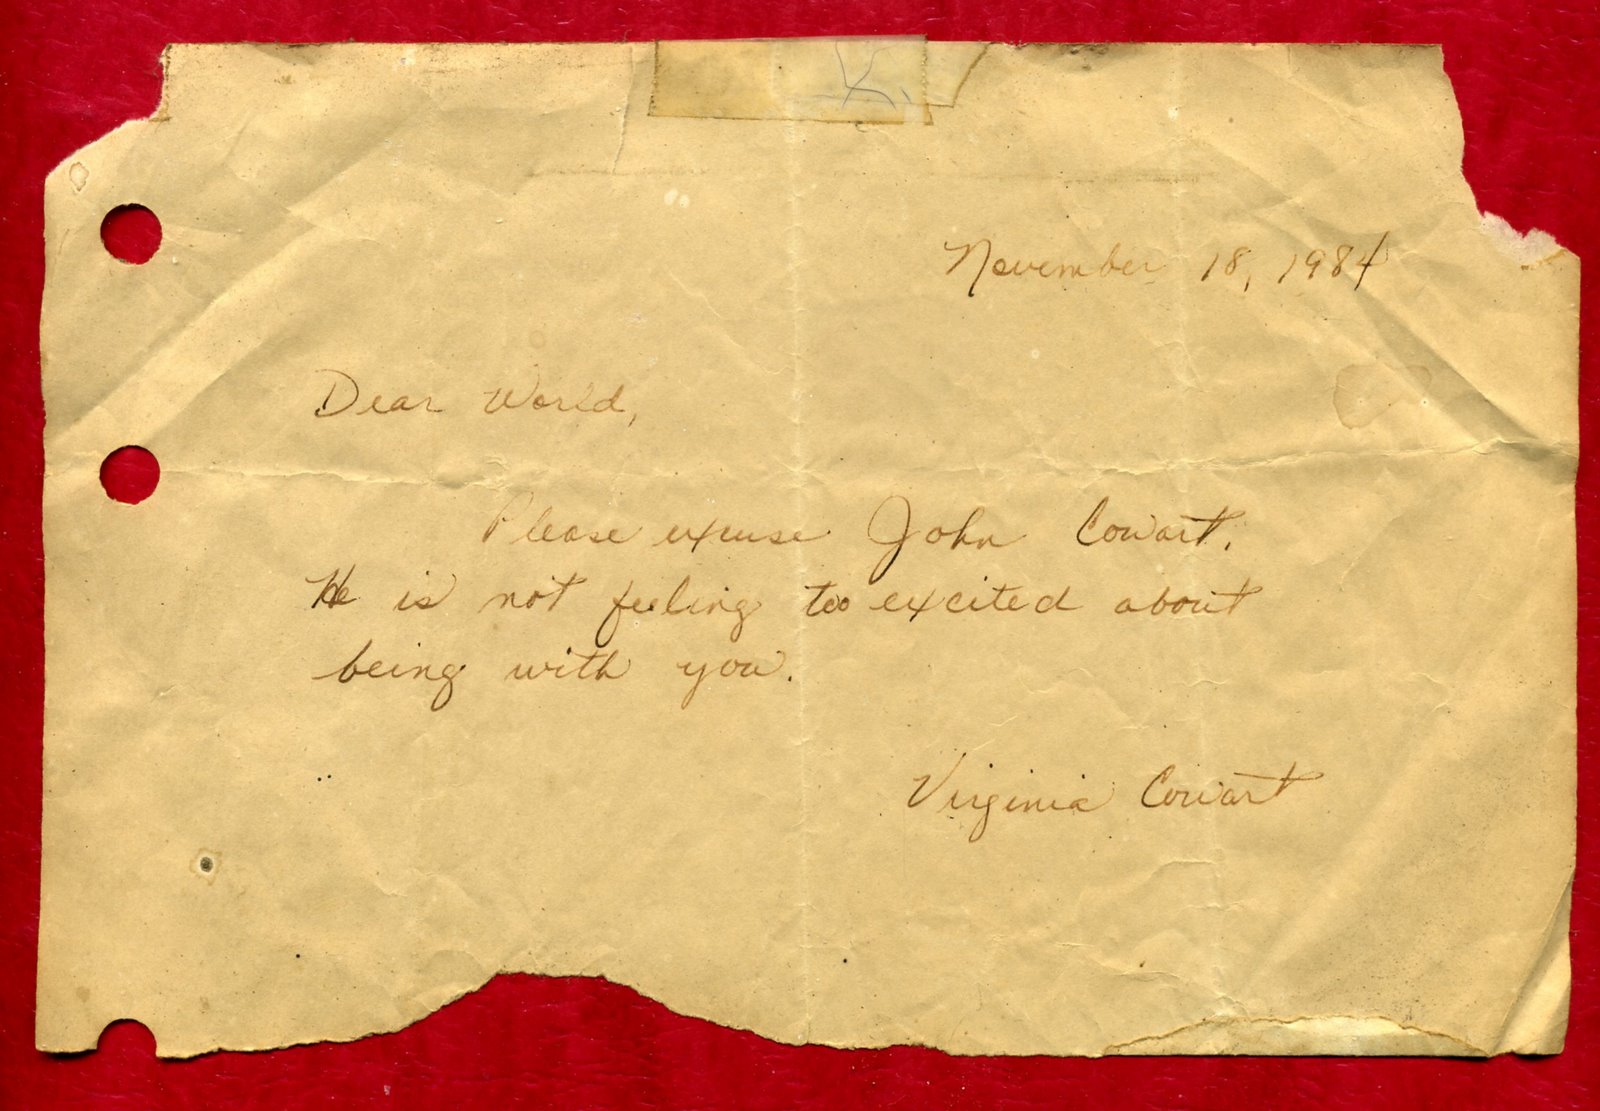 November 18, 1984
Dear World,
Please excuse John Cowart.
He is not feeling too excited about
being with you.
Virginia Cowart